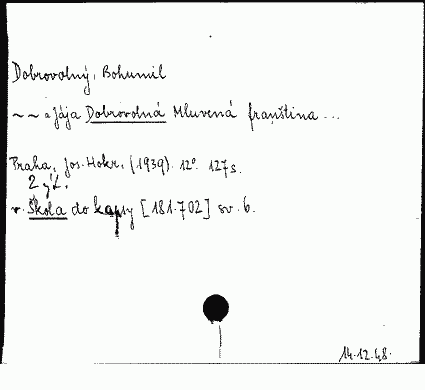 Dobrovolný, Bohumil
~ ~ a Jája Dobrovolná Mluvená franština ...
Praha, Jos. Hokr, (1939). 12°. 127 s.
2 výt.
v. Škola do kapsy [181.702] sv. 6.
14.12.48.